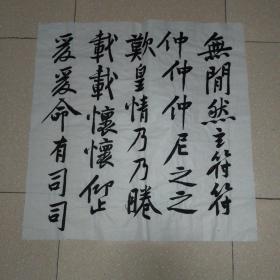 無間然主符符
仲仲仲尼之之
歎皇情乃乃睠
載載懷懷仰止
爰爰命有司司